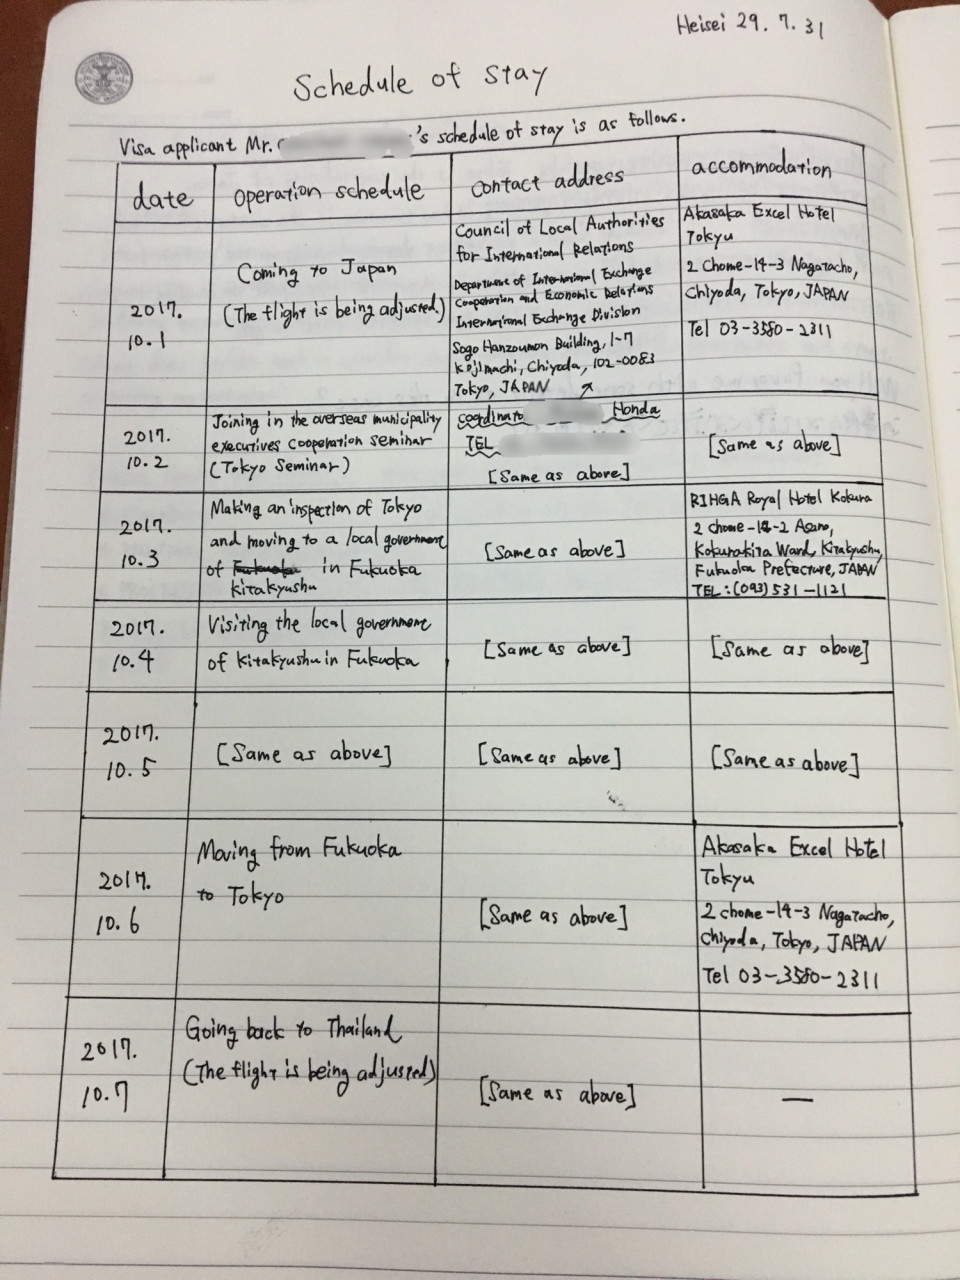 Heisei 29. 7. 31
Schedule of Stay
Visa applicant Mr. 's schedule of stay is as follows.
date
operation schedule
contact address
accommodation
2017.
10.1
Coming to Japan
(The flight is being adjusted.)
Council of Local Authorities
for International Relations
Department of International Exchange
Cooperation and Economic Relations
International Exchange Division
Sogo Hanzoumon Building, 1-7
Kojimachi, Chiyoda, 102-0083
Tokyo, JAPAN
Akasaka Excel Hotel
Tokyu
2 Chome-14-3 Nagatacho,
Chiyoda, Tokyo, JAPAN
Tel 03-3580-2311
2017.
10.2
Joining in the overseas municipality
executives cooperation seminar
(Tokyo Seminar)
Honda
TEL
[Same as above]
[Same as above]
2017.
10.3
Making an inspection of Tokyo
and moving to a local government
of Fukuoka in Fukuoka
Kitakyushu
[Same as above]
RIHGA Royal Hotel Kokura
2 chome-14-2 Asano,
Kokurakita Ward, Kitakyushu,
Fukuoka Prefecture, JAPAN
TEL: (093) 531-1121
2017.
10.4
Visiting the local government
of Kitakyushu in Fukuoka
[Same as above]
[Same as above]
2017.
10.5
[Same as above]
[Same as above]
[Same as above]
2017.
10.6
Moving from Fukuoka
to Tokyo
[Same as above]
Akasaka Excel Hotel
Tokyu
2 chome-14-3 Nagatacho,
Chiyoda, Tokyo, JAPAN
Tel 03-3580-2311
2017.
10.7
Going back to Thailand
(The flight is being adjusted)
[Same as above]
—